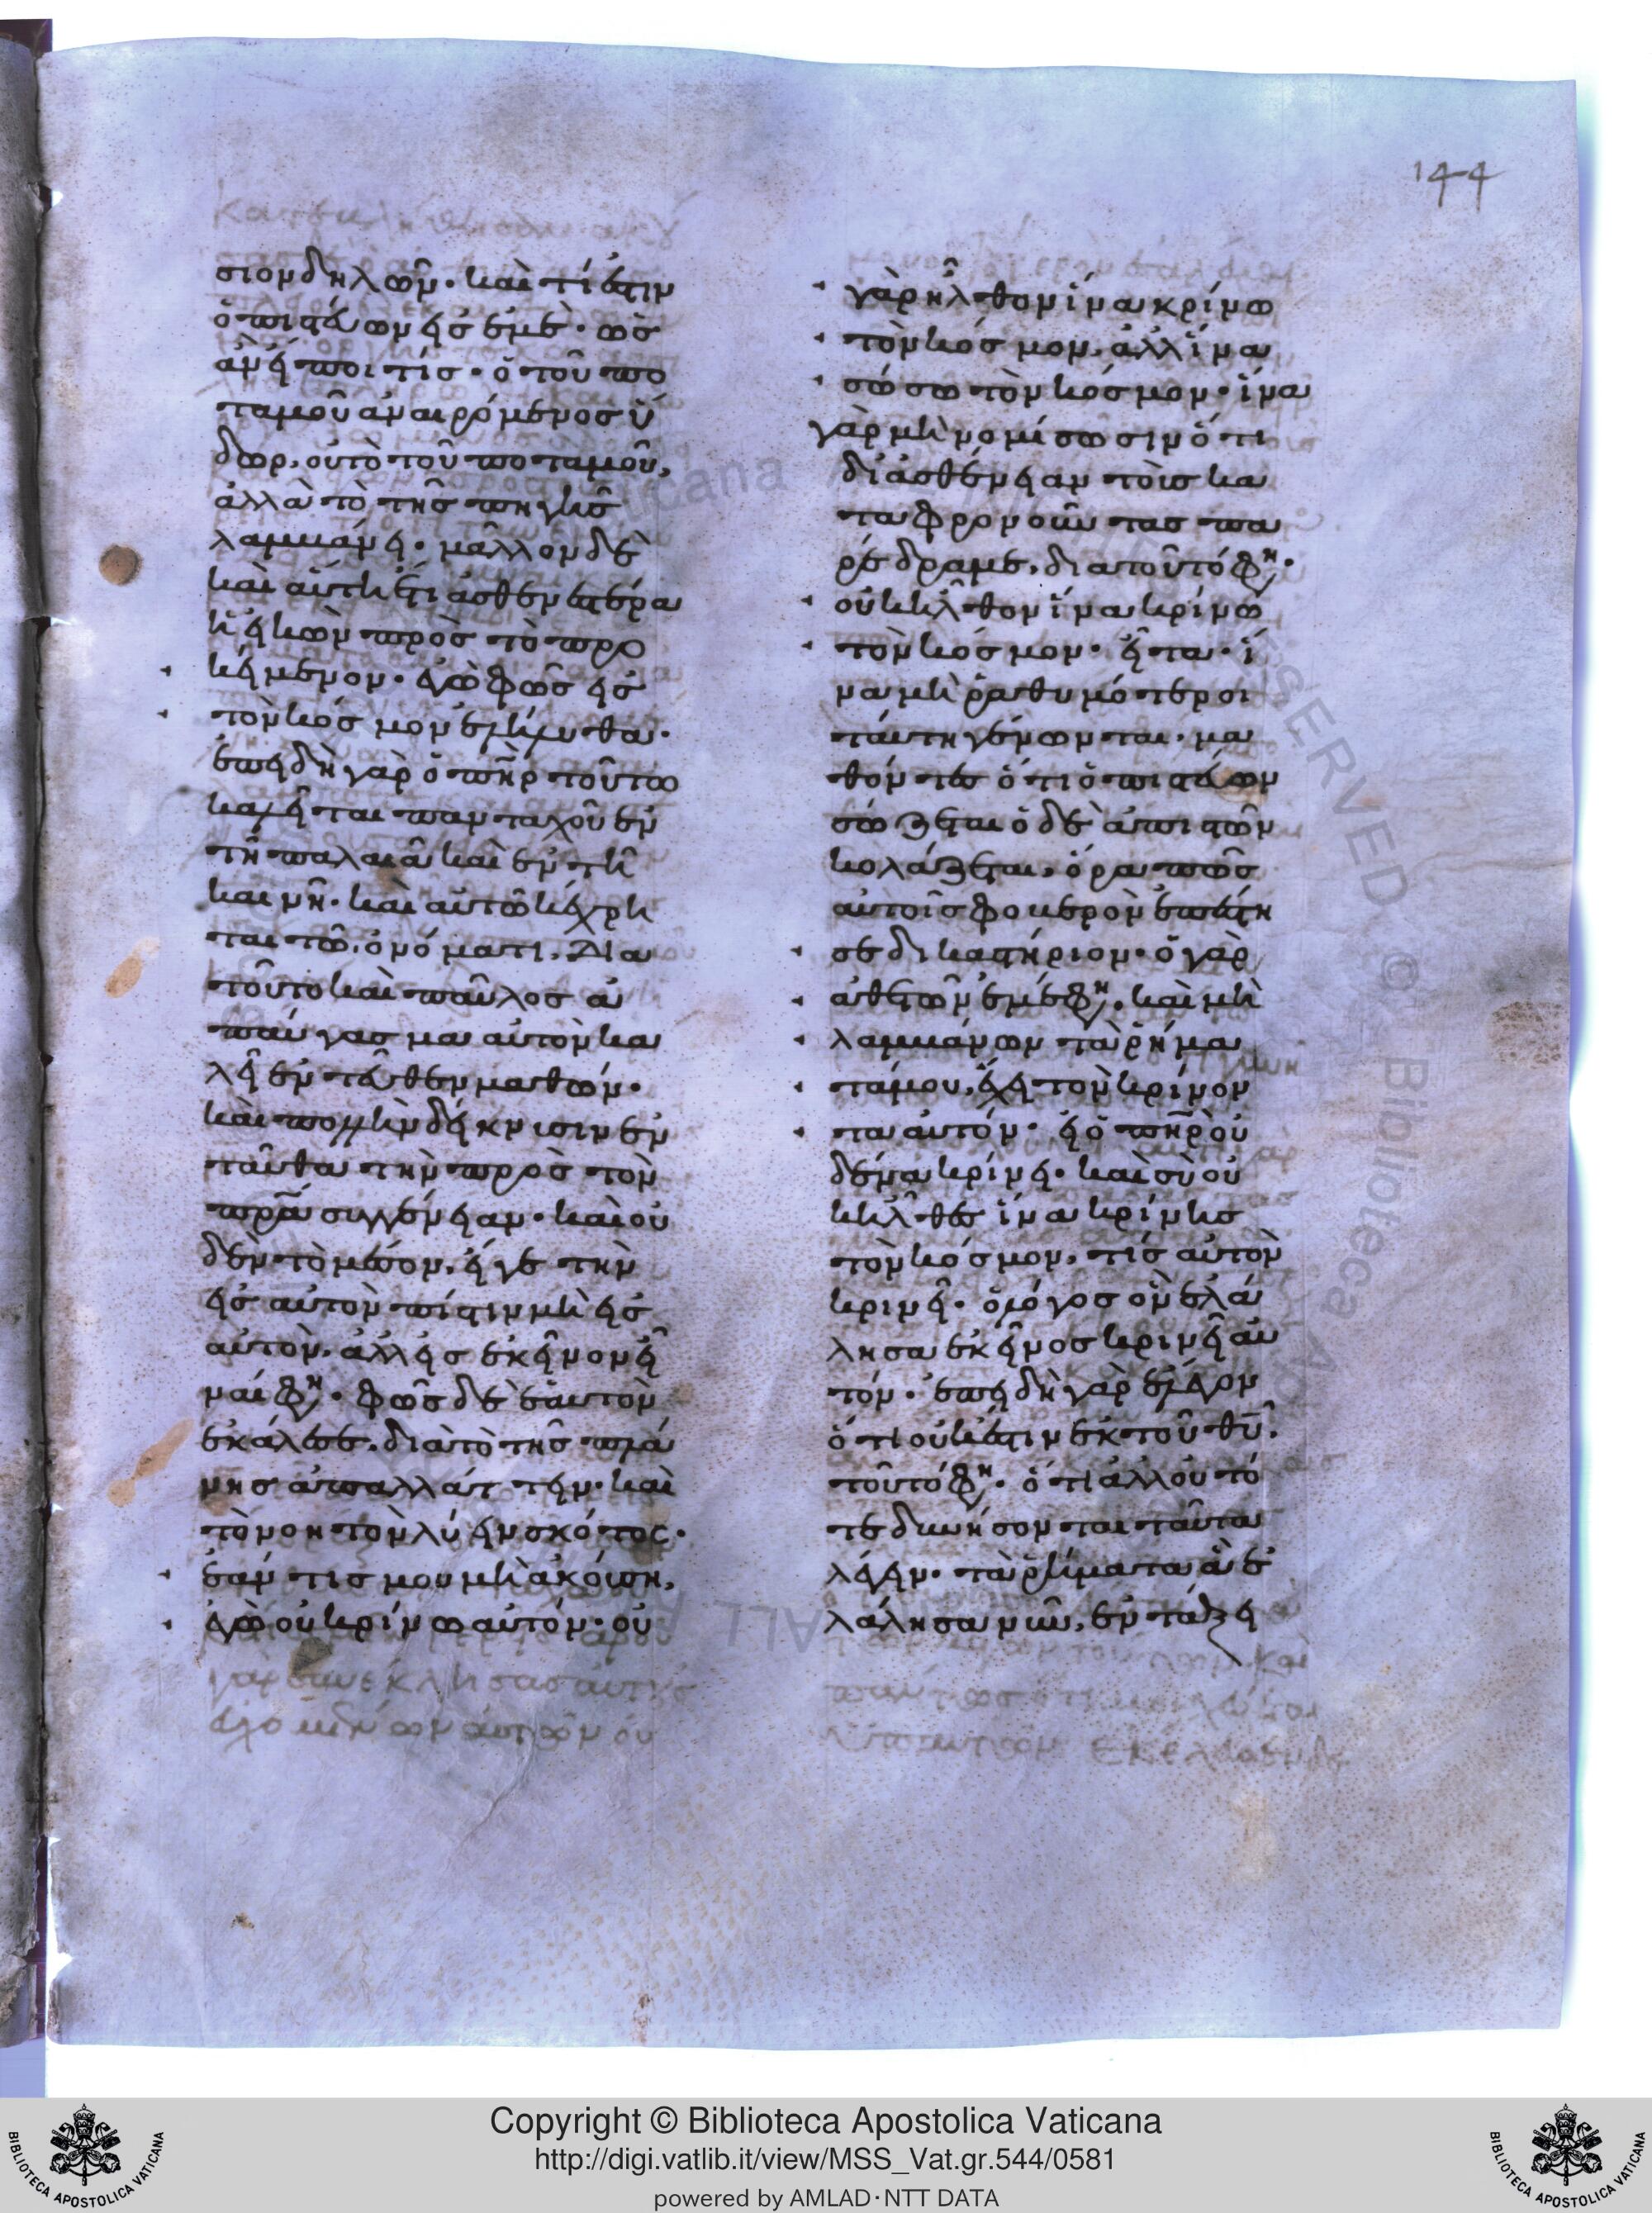 144
σιον δηλῶν· καὶ τί ἐστιν
ὁ πιστεύων εἰς ἐμέ· ὡς
ἂν εἴποι τίς· ὁ τοῦ πο
ταμοῦ ἀναιρόμενος ὕ
δωρ, οὐ τὸ τοῦ ποταμοῦ,
ἀλλὰ τὸ τῆς πηγῆς
λαμβάνει· μᾶλλον δὲ
καὶ αὕτη ἔτι ἀσθενεστέρα
ἡ εἰκὼν πρὸς τὸ προ
κείμενον· ἐγὼ φῶς εἰς
τὸν κόσμον ἐλήλυθα·
ἐπειδὴ γὰρ ὁ πηρ τοῦτω
καλεῖται πανταχοῦ ἐν
τῇ παλαιᾷ καὶ ἐν τῇ
καινῇ· καὶ αὐτῶ κέχρη
ται τῶ ὀνόματι. Δια
τοῦτο καὶ παῦλος ἀ
παύγασμα αὐτὸν κα
λεῖ ἐντεῦθεν μαθών·
καὶ πολλὴν δείκνυσιν ἐν
ταῦθα τὴν πρὸς τὸν
πρα συγγένειαν· καὶ οὐ
δὲν τὸ μέσον, εἴγε τὴν
εἰς αὐτὸν πίστιν μὴ εἰς
αὐτὸν, ἀλλ εἰς ἐκεῖνον εἶ
ναί φη· φῶς δὲ ἑαυτὸν
ἐκάλεσε, διὰ τὸ τῆς πλά
νης ἀπαλλάττειν· καὶ
τὸ νοητὸν λύειν σκότος·
ἐάν τις μου μὴ ἀκούση,
ἐγὼ οὐ κρίνω αὐτόν· οὐ
γὰρ ἦλθον ἵνα κρίνω
τὸν κόσμον, ἀλλ ἵνα
σώσω τὸν κόσμον· ἵνα
γὰρ μὴ νομίσωσιν ὅτι
δι ἀσθένειαν τοὺς κα
ταφρονοῦντας πα
ρέδραμε, διατοῦτό φη·
οὐκ ἦλθον ἵνα κρίνω
τὸν κόσμον· εἶτα· ἵ
να μὴ ῥαθυμότεροι
ταύτη γένωνται· μα
θόντες ὅτι ὁ πιστεύων
σώζεται ὁ δὲ ἀπιστῶν
κολάζεται, ὅρα πῶς
αὐτοῖς φοβερὸν ἐπέστη
σε δικαστήριον· ὁ γὰρ
ἀθετῶν ἐμέ φη, καὶ μὴ
λαμβάνων τὰ ῥήμα
τά μου, ἔχει τὸν κρίνον
τα αὐτόν· εἰ ὁ πηρ οὐ
δένα κρίνει· καὶ σὺ οὐ
κ ἦλθες ἵνα κρίνης
τὸν κόσμον, τίς αὐτὸν
κρινεῖ· ὁ λόγος ὃν ἐλά
λησα ἐκεῖνος κρινεῖ αὐ
τόν· ἐπειδὴ γὰρ ἔλεγον
ὅτι οὐκ ἔστιν ἐκ τοῦ θυ,
τοῦτό φη· ὅτι ἀλλ οὐ τό
τε δυνήσονται ταῦτα
λέγειν· τὰ ῥήματα ἃ ἐ
λάλησα νῦν, ἐν τάξει
Copyright © Biblioteca Apostolica Vaticana
http://digi.vatlib.it/view/MSS_Vat.gr.544/0581
powered by AMLAD·NTT DATA
BIBLIOTECA APOSTOLICA VATICANA
BIBLIOTECA APOSTOLICA VATICANA